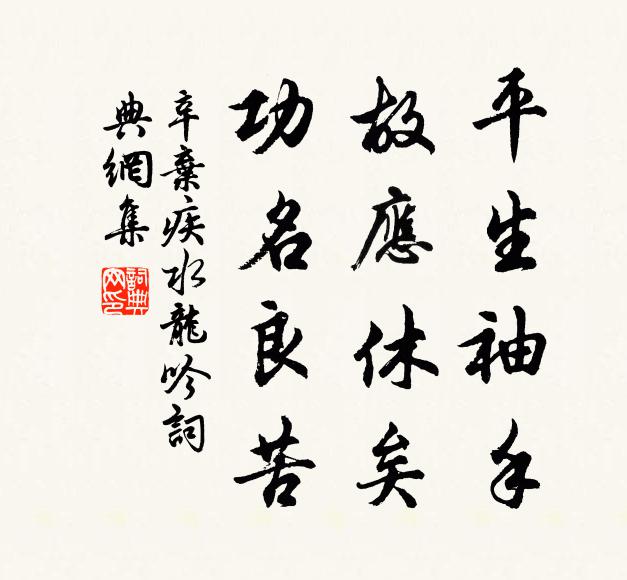 平生袖手
故應休矣
功名良苦
辛棄疾水龍吟詞
典網集
詞典網印